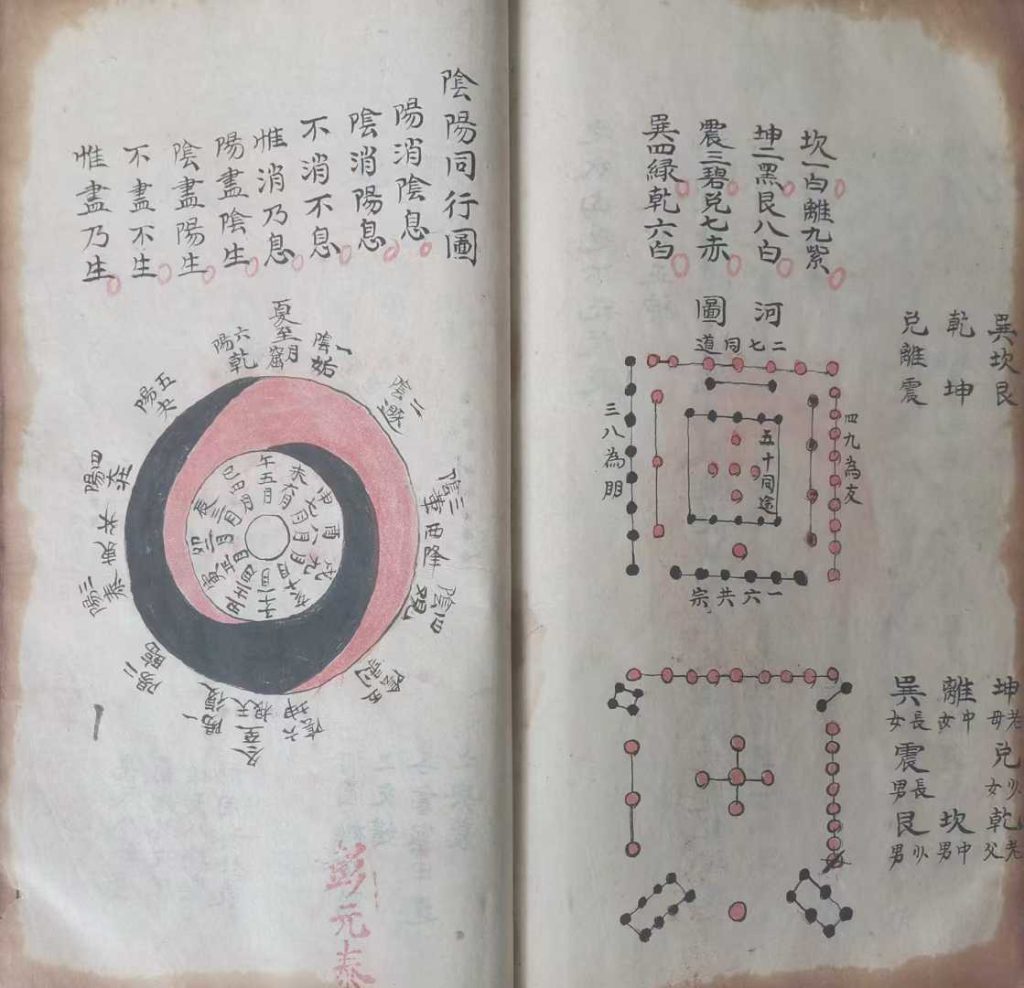 坎一白離九紫
坤二黑艮八白
震三碧兌七赤
巽四綠乾六白
河圖
二七同道
三八為朋
四九為友
五十同途
一六共宗
巽坎艮
乾坤
兌離震
坤老母
兌少女
乾老父
離中女
坎中男
巽長女
震長男
艮少男
陰陽同行圖
陽消陰息
陰消陽息
不消不息
惟消乃息
陽盡陰生
陰盡陽生
不盡不生
惟盡乃生
夏至月窟
一陰姤
二陰遯
三陰
四陰觀
五陰剝
六陰坤
冬至天根
一陽復
二陽臨
三陽泰
四陽壯
五陽夬
六陽乾
午五月
未六月
申七月
酉八月
戌九月
亥十月
寅正月
卯二月
辰三月
巳四月
彭元泰